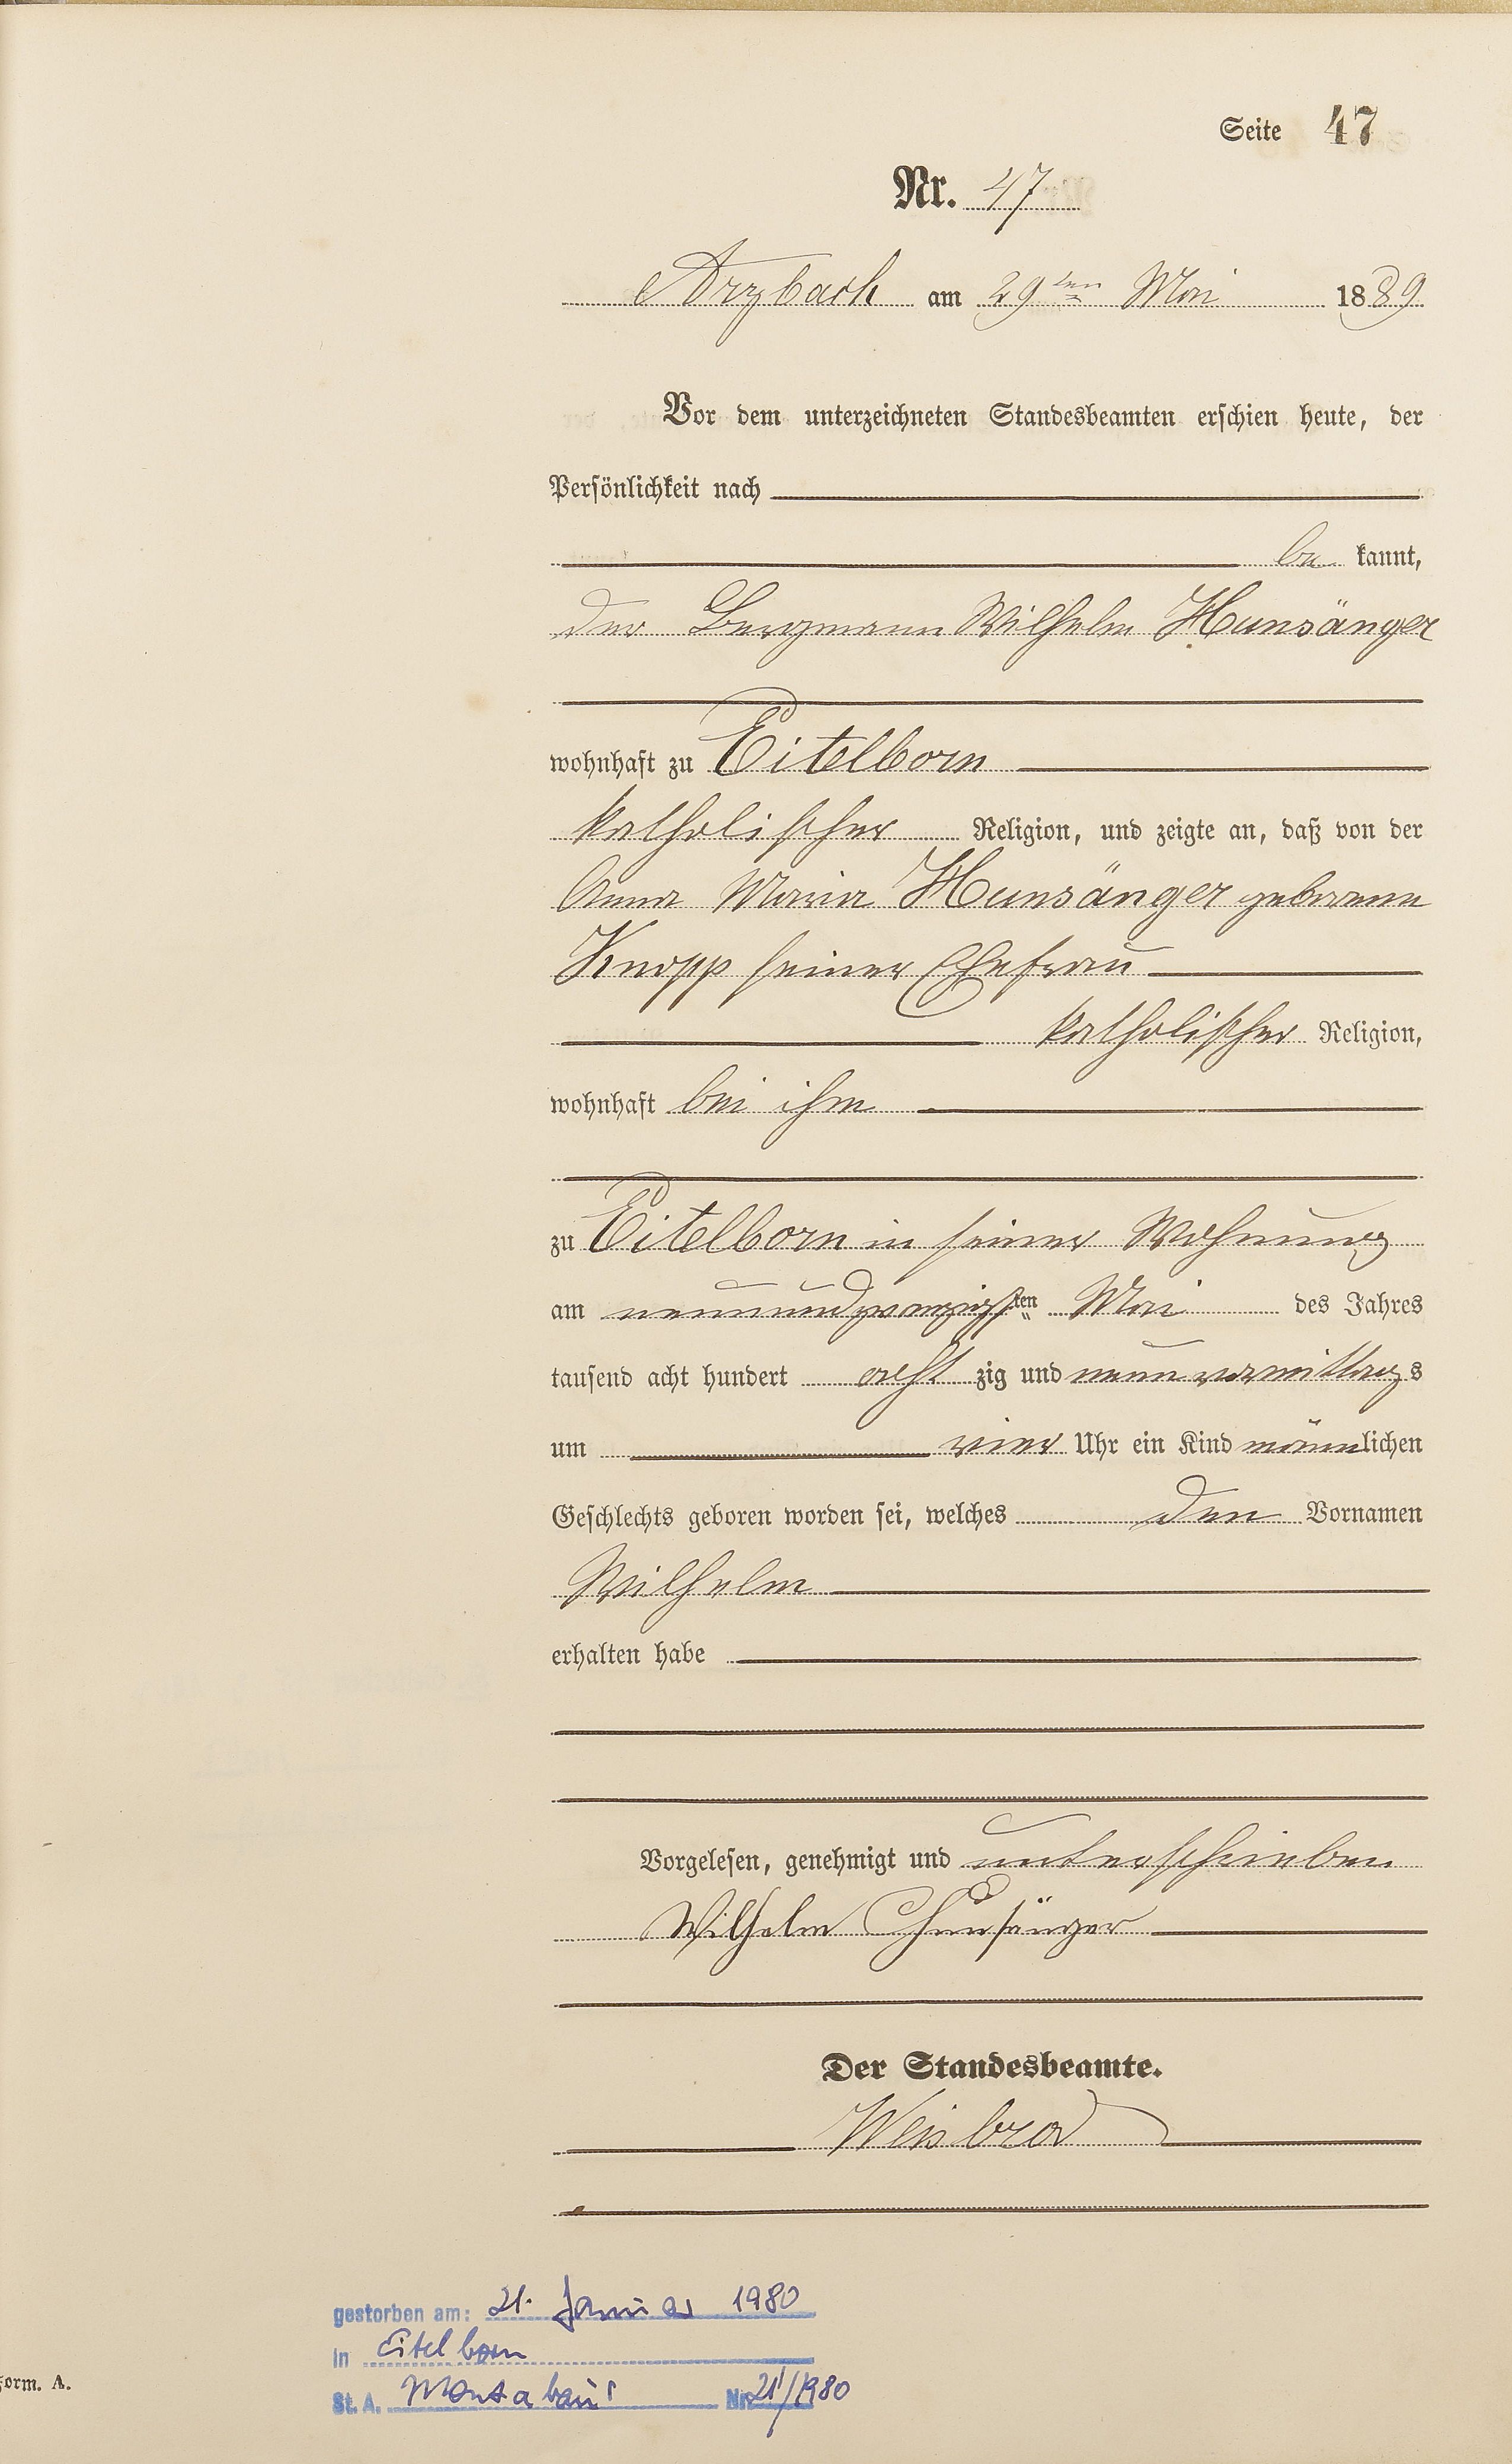 Seite 47
Nr. 47
Arzbach am 29ten Mai 1889
Vor dem unterzeichneten Standesbeamten erschien heute, der
Persönlichkeit nach
be kannt,
der Bergmann Wilhelm Hunsänger
wohnhaft zu Eitelborn
katholischer Religion, und zeigte an, daß von der
Anna Maria Hunsänger geborenen
Knopp seiner Ehefrau
katholischer Religion,
wohnhaft bei ihm
zu Eitelborn in seiner Wohnung
am neunundzwanzigsten Mai des Jahres
tausend acht hundert acht zig und neun vormittags
um vier Uhr ein Kind männlichen
Geschlechts geboren worden sei, welches den Vornamen
Wilhelm
erhalten habe
Vorgelesen, genehmigt und unterschrieben
Wilhelm Hunsänger
Der Standesbeamte.
Weisbrod
gestorben am: 21. Januar 1980
in Eitelborn
St. A. Montabaur Nr. 21/1980
Form. A.